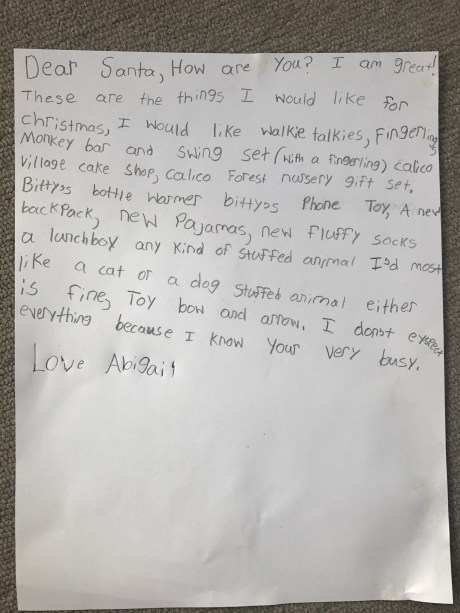 Dear Santa, How are You? I am great!
These are the things I would like for
christmas, I would like walkie talkies, Fingerlings
Monkey bar and swing set (with a fingerling) calico
village cake shop, calico Forest nursery gift set.
Bitty's bottle warmer bitty's Phone Toy, A new
backpack, new Pajamas, new fluffy socks
a lunchboy any kind of stuffed animal I'd most
like a cat or a dog stuffed animal either
is fine, Toy bow and arrow. I don't expect
everything because I know your very busy.
Love Abigail